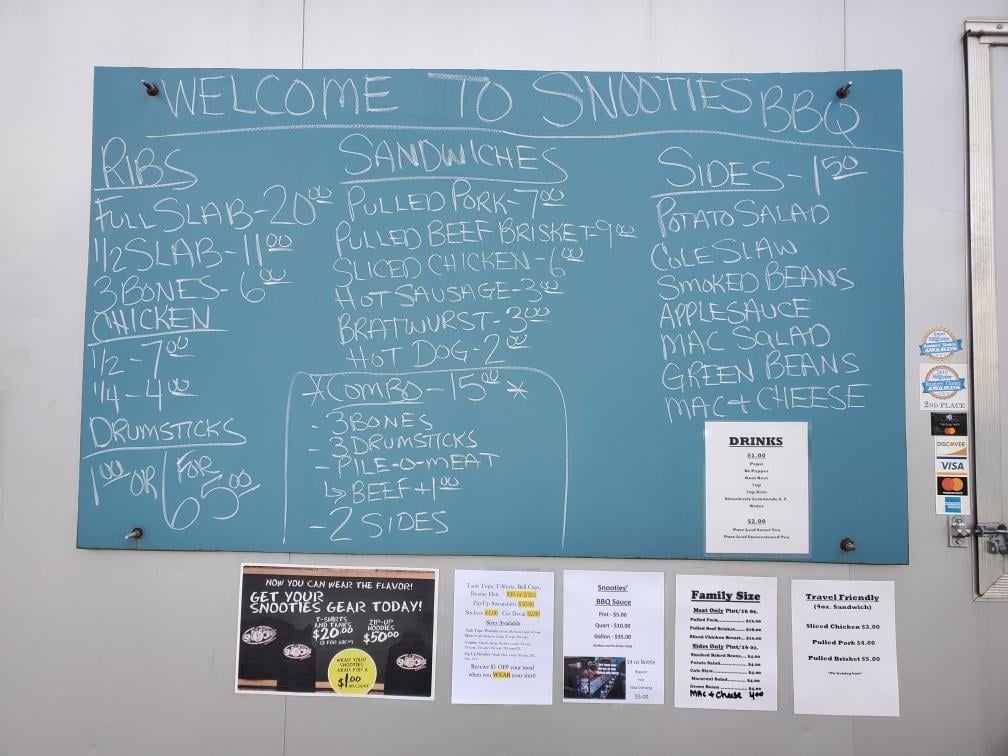 WELCOME TO SNOOTIES BBQ
RIBS
FULL SLAB-20.00
1/2 SLAB-11.00
3 BONES-6.00
CHICKEN
1/2-7.00
1/4-4.00
DRUMSTICKS
1.00 OR 6 FOR 5.00
SANDWICHES
PULLED PORK-7.00
PULLED BEEF BRISKET-9.00
SLICED CHICKEN-6.00
HOT SAUSAGE-3.00
BRATWURST-3.00
HOT DOG-2.00
*COMBO-15.00*
- 3 BONES
- 3 DRUMSTICKS
- PILE-O-MEAT
↳ BEEF+1.00
- 2 SIDES
SIDES-1.50
POTATO SALAD
COLE SLAW
SMOKED BEANS
APPLESAUCE
MAC SALAD
GREEN BEANS
MAC & CHEESE
DRINKS
$1.00
Pepsi
Dr Pepper
Root Beer
7up
Strawberry Lemonade S. F.
Water
$2.00
Pure Leaf Sweet Tea
Pure Leaf Unsweetened Tea
2ND PLACE
DISCOVER
VISA
NOW YOU CAN WEAR THE FLAVOR!
GET YOUR
SNOOTIES GEAR TODAY!
T-SHIRTS
AND TANKS
$20.00
ZIP-UP
HOODIES
$50.00
WEAR YOUR
SNOOTIES
GEAR FOR A
$1.00
Tank Tops, T-Shirts, Ball Caps,
Beanie Hats
Zip-Up Sweatshirts $50.00
Stickers $2.00 Car Decal $2.00
Sizes Available
Receive $1 OFF your meal
when you WEAR your shirt!
Snooties'
BBQ Sauce
Pint - $5.00
Quart - $10.00
Gallon - $35.00
14 oz Bottle
Regular
Hot
$5.00
Family Size
Meat Only Pint/16 oz.
Sides Only Pint/16 oz.
Smoked Baked Beans...$4.00
Potato Salad...$4.00
Cole Slaw...$4.00
Macaroni Salad...$4.00
Green Beans...$4.00
Mac & Cheese 4.00
Travel Friendly
(4oz. Sandwich)
Sliced Chicken $3.00
Pulled Pork $4.00
Pulled Brisket $5.00